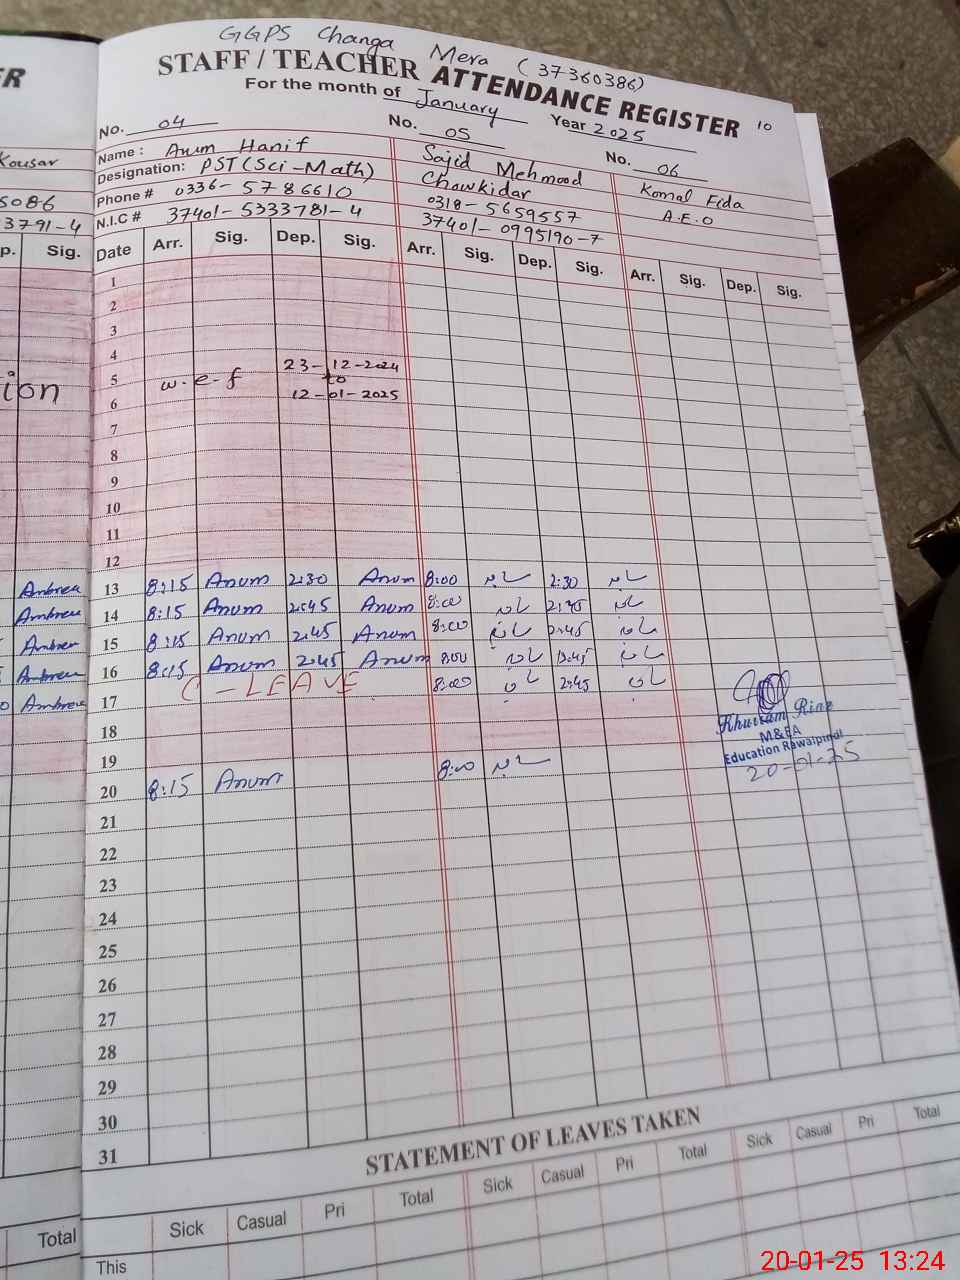 GGPS Changa Mera (37360386)
STAFF / TEACHER ATTENDANCE REGISTER 10
For the month of January Year 2025
No. 04 No. 05 No. 06
Name : Anum Hanif Sajid Mehmood Komal Fida
Designation: PST (Sci-Math) Chowkidar A.E.O
Phone # 0336-5786610 0318-5659557
N.I.C # 37401-5333781-4 37401-0995190-7
Date Arr. Sig. Dep. Sig. Arr. Sig. Dep. Sig. Arr. Sig. Dep. Sig.
1
2
3
4
23-12-2024
5 w.e.f to
6 12-01-2025
7
8
9
10
11
12
13 8:15 Anum 2:30 Anum 8:00 2:30
14 8:15 Anum 2:45 Anum 8:00 2:45
15 8:15 Anum 2:45 Anum 8:00 2:45
16 8:15 Anum 2:45 Anum 8:00
17 C-LEAVE 8:00 2:45
18
19
20 8:15 Anum 8:00
21
22
23
24
25
26
27
28
29
30
31
Khurram Riaz
M&EA
Education Rawalpindi
20-01-25
STATEMENT OF LEAVES TAKEN
Sick Casual Pri Total Sick Casual Pri Total Sick Casual Pri Total
This
ER
Kousar
5086
3791-4
p. Sig.
ion
Ambreen
Ambreen
Ambreen
Ambreen
Ambreen
Total
20-01-25 13:24